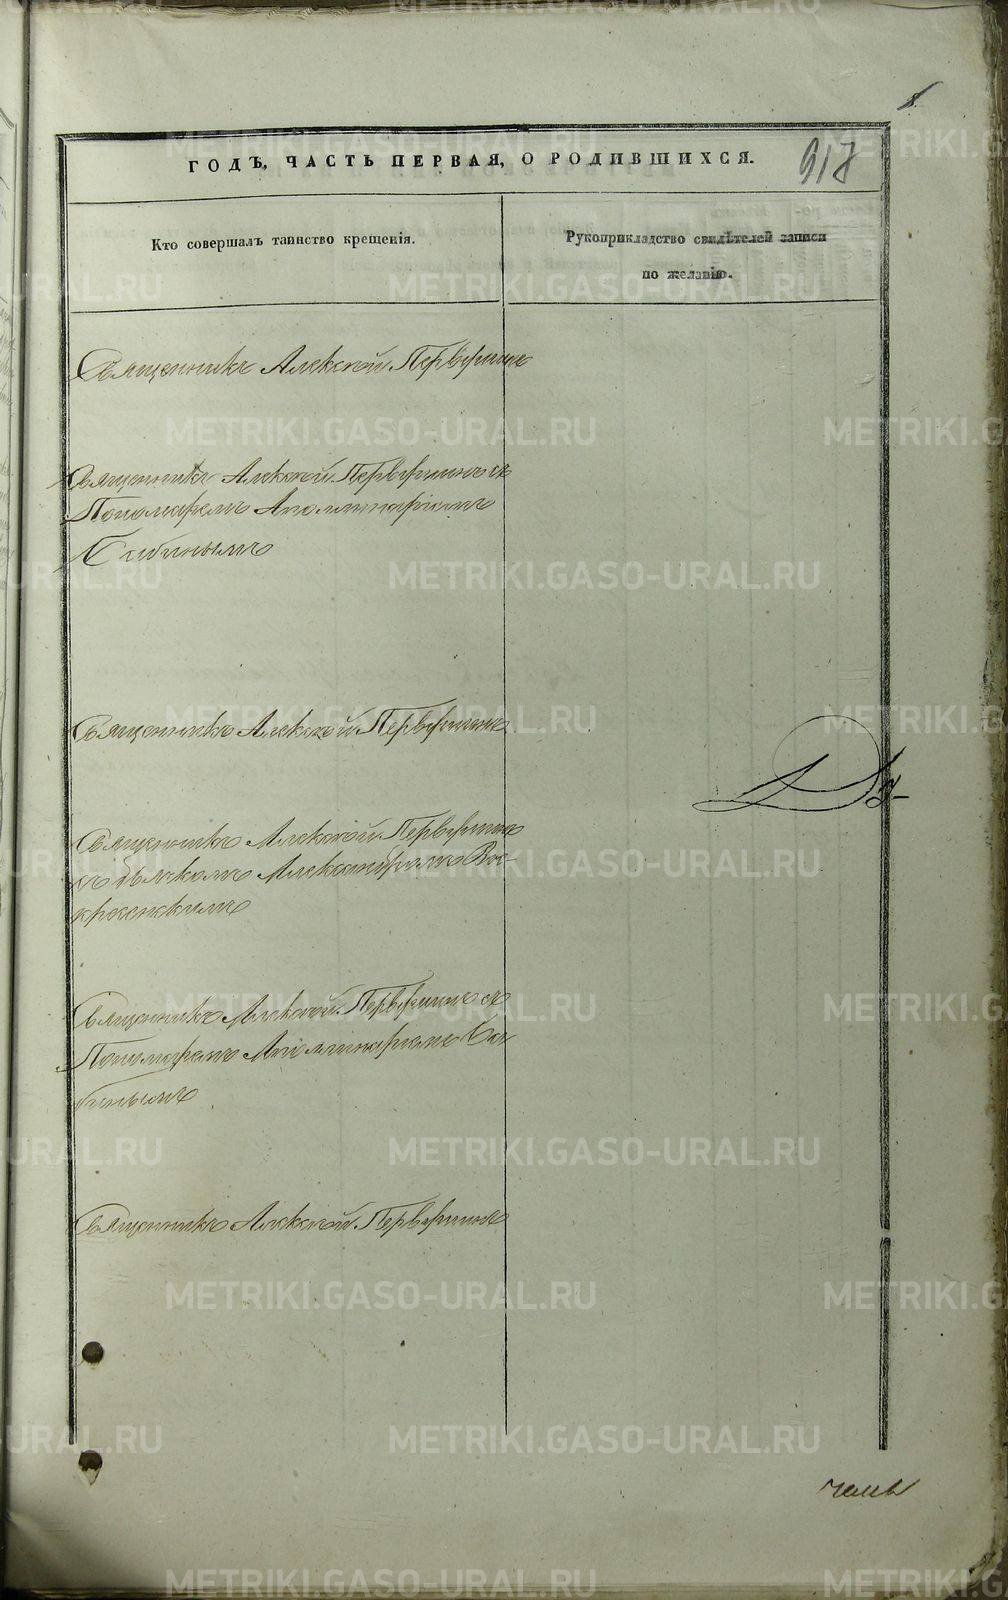 8.
ГОДЪ, ЧАСТЬ ПЕРВАЯ, О РОДИВШИХСЯ.
917
Кто совершалъ таинство крещенія.
Рукоприкладство свидѣтелей записи
по желанію.
Священникъ Алексѣй Первушинъ
Священникъ Алексѣй Первушинъ съ
Пономаремъ Аполлинаріемъ
Бабинымъ
Священникъ Алексѣй Первушинъ
Священникъ Алексѣй Первушинъ
съ дьячкомъ Александромъ Вос-
кресенскимъ
Священникъ Алексѣй Первушинъ съ
Пономаремъ Аполлинаріемъ Ба-
бинымъ
Священникъ Алексѣй Первушинъ
METRIKI.GASO-URAL.RU